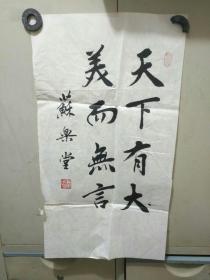 天下有大
美而無言
蘇樂堂